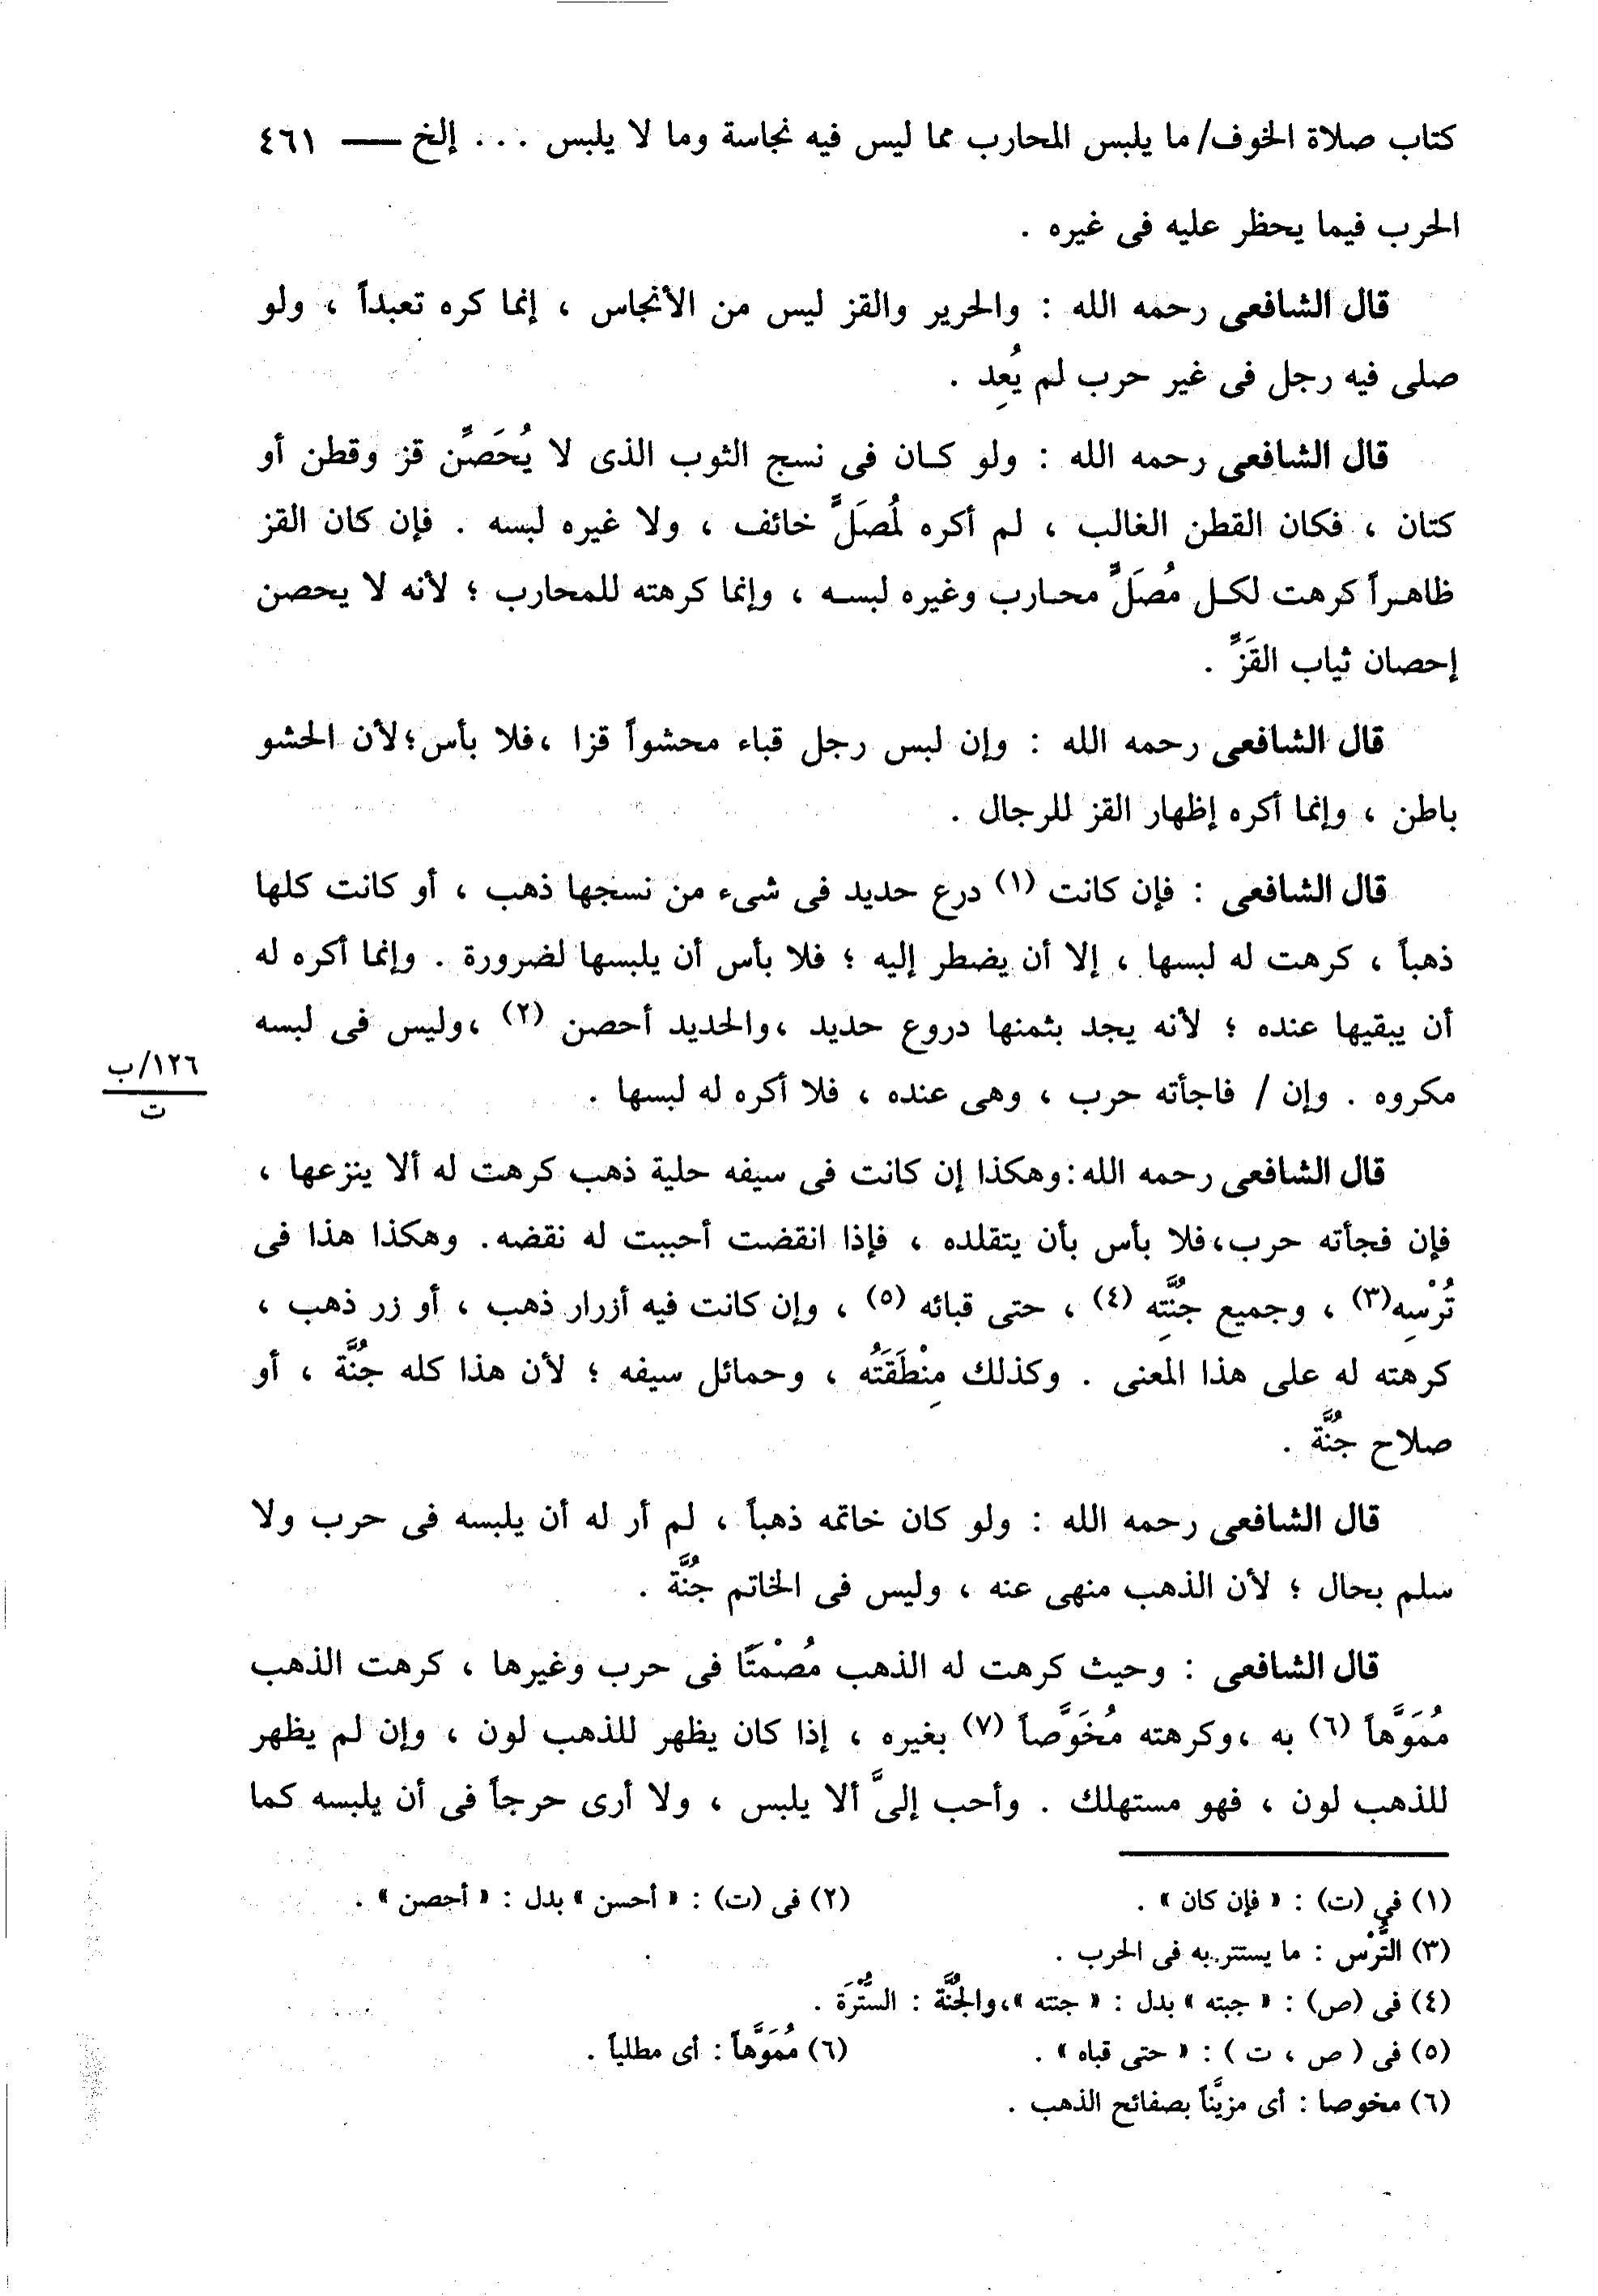 كتاب صلاة الخوف/ ما يلبس المحارب مما ليس فيه نجاسة وما لا يلبس ... إلخ —— ٤٦١
الحرب فيما يحظر عليه فى غيره .
قال الشافعى رحمه الله : والحرير والقز ليس من الأنجاس ، إنما كره تعبداً ، ولو
صلى فيه رجل فى غير حرب لم يُعِد .
قال الشافعى رحمه الله : ولو كـان فى نسج الثوب الذى لا يُحَصِّن قز وقطن أو
كتان ، فكان القطن الغالب ، لم أكره لمُصَلٍّ خائف ، ولا غيره لبسه . فإن كان القز
ظاهـراً كرهت لكـل مُصَلٍّ محـارب وغيره لبسـه ، وإنما كرهته للمحارب ؛ لأنه لا يحصن
إحصان ثياب القَزِّ .
قال الشافعى رحمه الله : وإن لبس رجل قباء محشواً قزا ،فلا بأس؛لأن الحشو
باطن ، وإنما أكره إظهار القز للرجال .
قال الشافعى : فإن كانت (١) درع حديد فى شىء من نسجها ذهب ، أو كانت كلها
ذهباً ، كرهت له لبسها ، إلا أن يضطر إليه ؛ فلا بأس أن يلبسها لضرورة . وإنما أكره له
أن يبقيها عنده ؛ لأنه يجد بثمنها دروع حديد ،والحديد أحصن (٢) ،وليس فى لبسه
مكروه . وإن / فاجأته حرب ، وهى عنده ، فلا أكره له لبسها .
١٢٦/ب
ت
قال الشافعى رحمه الله:وهكذا إن كانت فى سيفه حلية ذهب كرهت له ألا ينزعها ،
فإن فجأته حرب،فلا بأس بأن يتقلده ، فإذا انقضت أحببت له نقضه. وهكذا هذا فى
تُرْسِه(٣) ، وجميع جُنَّتِه (٤) ، حتى قبائه (٥) ، وإن كانت فيه أزرار ذهب ، أو زر ذهب ،
كرهته له على هذا المعنى . وكذلك مِنْطَقَتُه ، وحمائل سيفه ؛ لأن هذا كله جُنَّة ، أو
صلاح جُنَّة .
قال الشافعى رحمه الله : ولو كان خاتمه ذهباً ، لم أر له أن يلبسه فى حرب ولا
سلم بحال ؛ لأن الذهب منهى عنه ، وليس فى الخاتم جُنَّة .
قال الشافعى : وحيث كرهت له الذهب مُصْمَتًا فى حرب وغيرها ، كرهت الذهب
مُمَوَّهاً (٦) به ،وكرهته مُخَوَّصاً (٧) بغيره ، إذا كان يظهر للذهب لون ، وإن لم يظهر
للذهب لون ، فهو مستهلك . وأحب إلىَّ ألا يلبس ، ولا أرى حرجاً فى أن يلبسه كما
(١) فى (ت) : « فإن كان » . (٢) فى (ت) : « أحسن » بدل : « أحصن » .
(٣) التُّرْس : ما يستتر به فى الحرب .
(٤) فى (ص) : « جبته » بدل : « جنته »،والجُنَّة : السُّتْرَة .
(٥) فى ( ص ، ت ) : « حتى قباه » . (٦) مُمَوَّهاً : أى مطلياً .
(٦) مخوصا : أى مزيَّناً بصفائح الذهب .